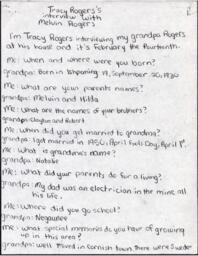 Tracy Rogers's
interview with
Melvin Rogers
I'm Tracy Rogers interviewing my grandpa Rogers
at his house and it's February the fourteenth.
Me: When and where were you born?
grandpa: Born in Ishpeming, September 20,
Me: What are your parents names?
grandpa: Melvin and Hilda
Me: What are the names of your brothers?
grandpa: Clayton and Robert
Me: When did you get married to grandma?
grandpa: I got married in 1956, April Fools Day, April 1st.
Me: What is grandma's name?
grandpa: Natalie
Me: What did your parents do for a living?
grandpa: My dad was an electrician in the mine all
his life.
Me: Where did you go school?
grandpa: Negaunee
Me: What special memories do you have of growing
up in this area?
grandpa: Well I lived in Cornish town. There were Swede